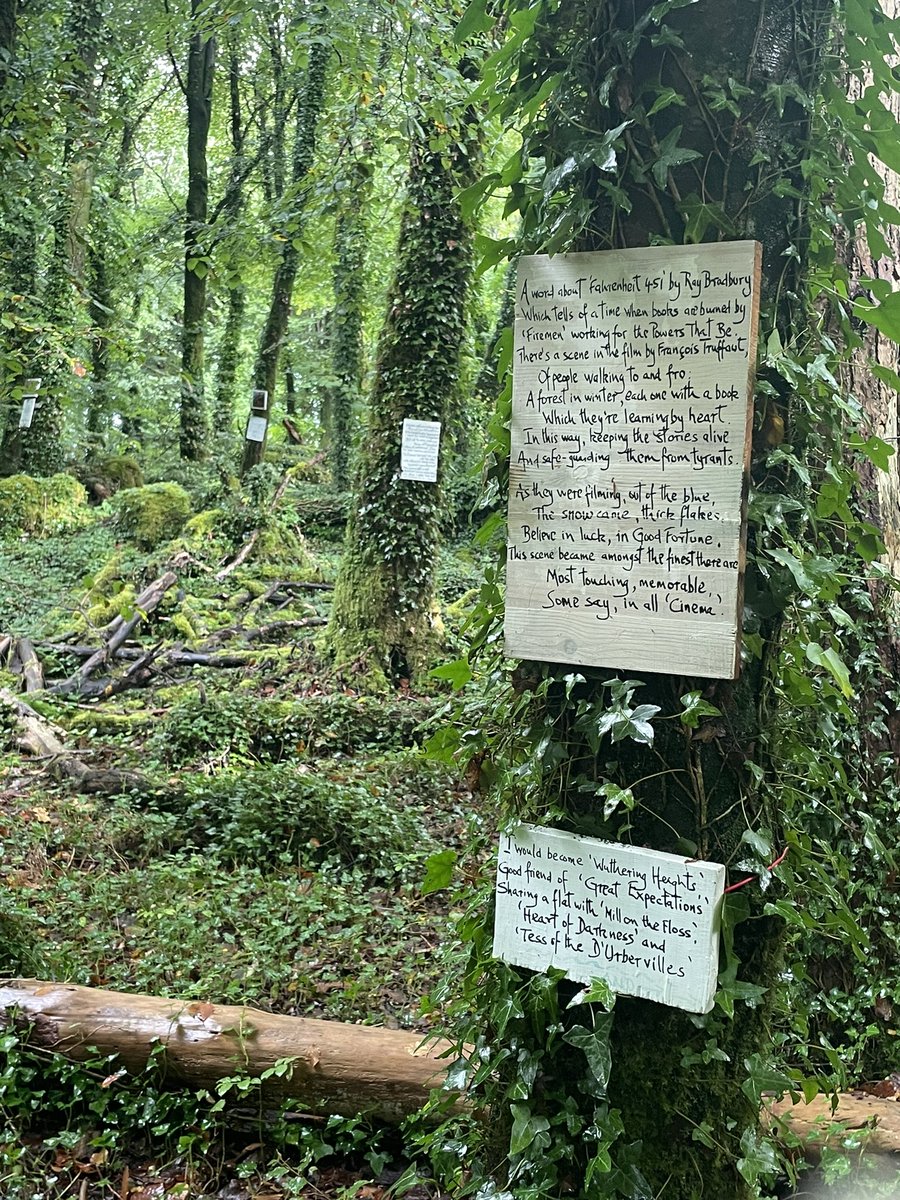 A word about 'Fahrenheit 451' by Ray Bradbury
Which tells of a time when books are burned by
'Firemen' working for the Powers That Be.
There's a scene in the film by François Truffaut
Of people walking to and fro.
A forest in winter, each one with a book
Which they're learning by heart.
In this way, keeping the stories alive
And safe-guiding them from tyrants.
As they were filming, out of the blue,
The snow came, thick flakes.
Believe in luck, in Good Fortune.
This scene became amongst the finest there are
Most touching, memorable,
Some say, in all 'Cinema'.
I would become 'Wuthering Heights'
Good friend of 'Great Expectations'
Sharing a flat with 'Mill on the Floss',
'Heart of Darkness' and
'Tess of the D'Urbervilles'